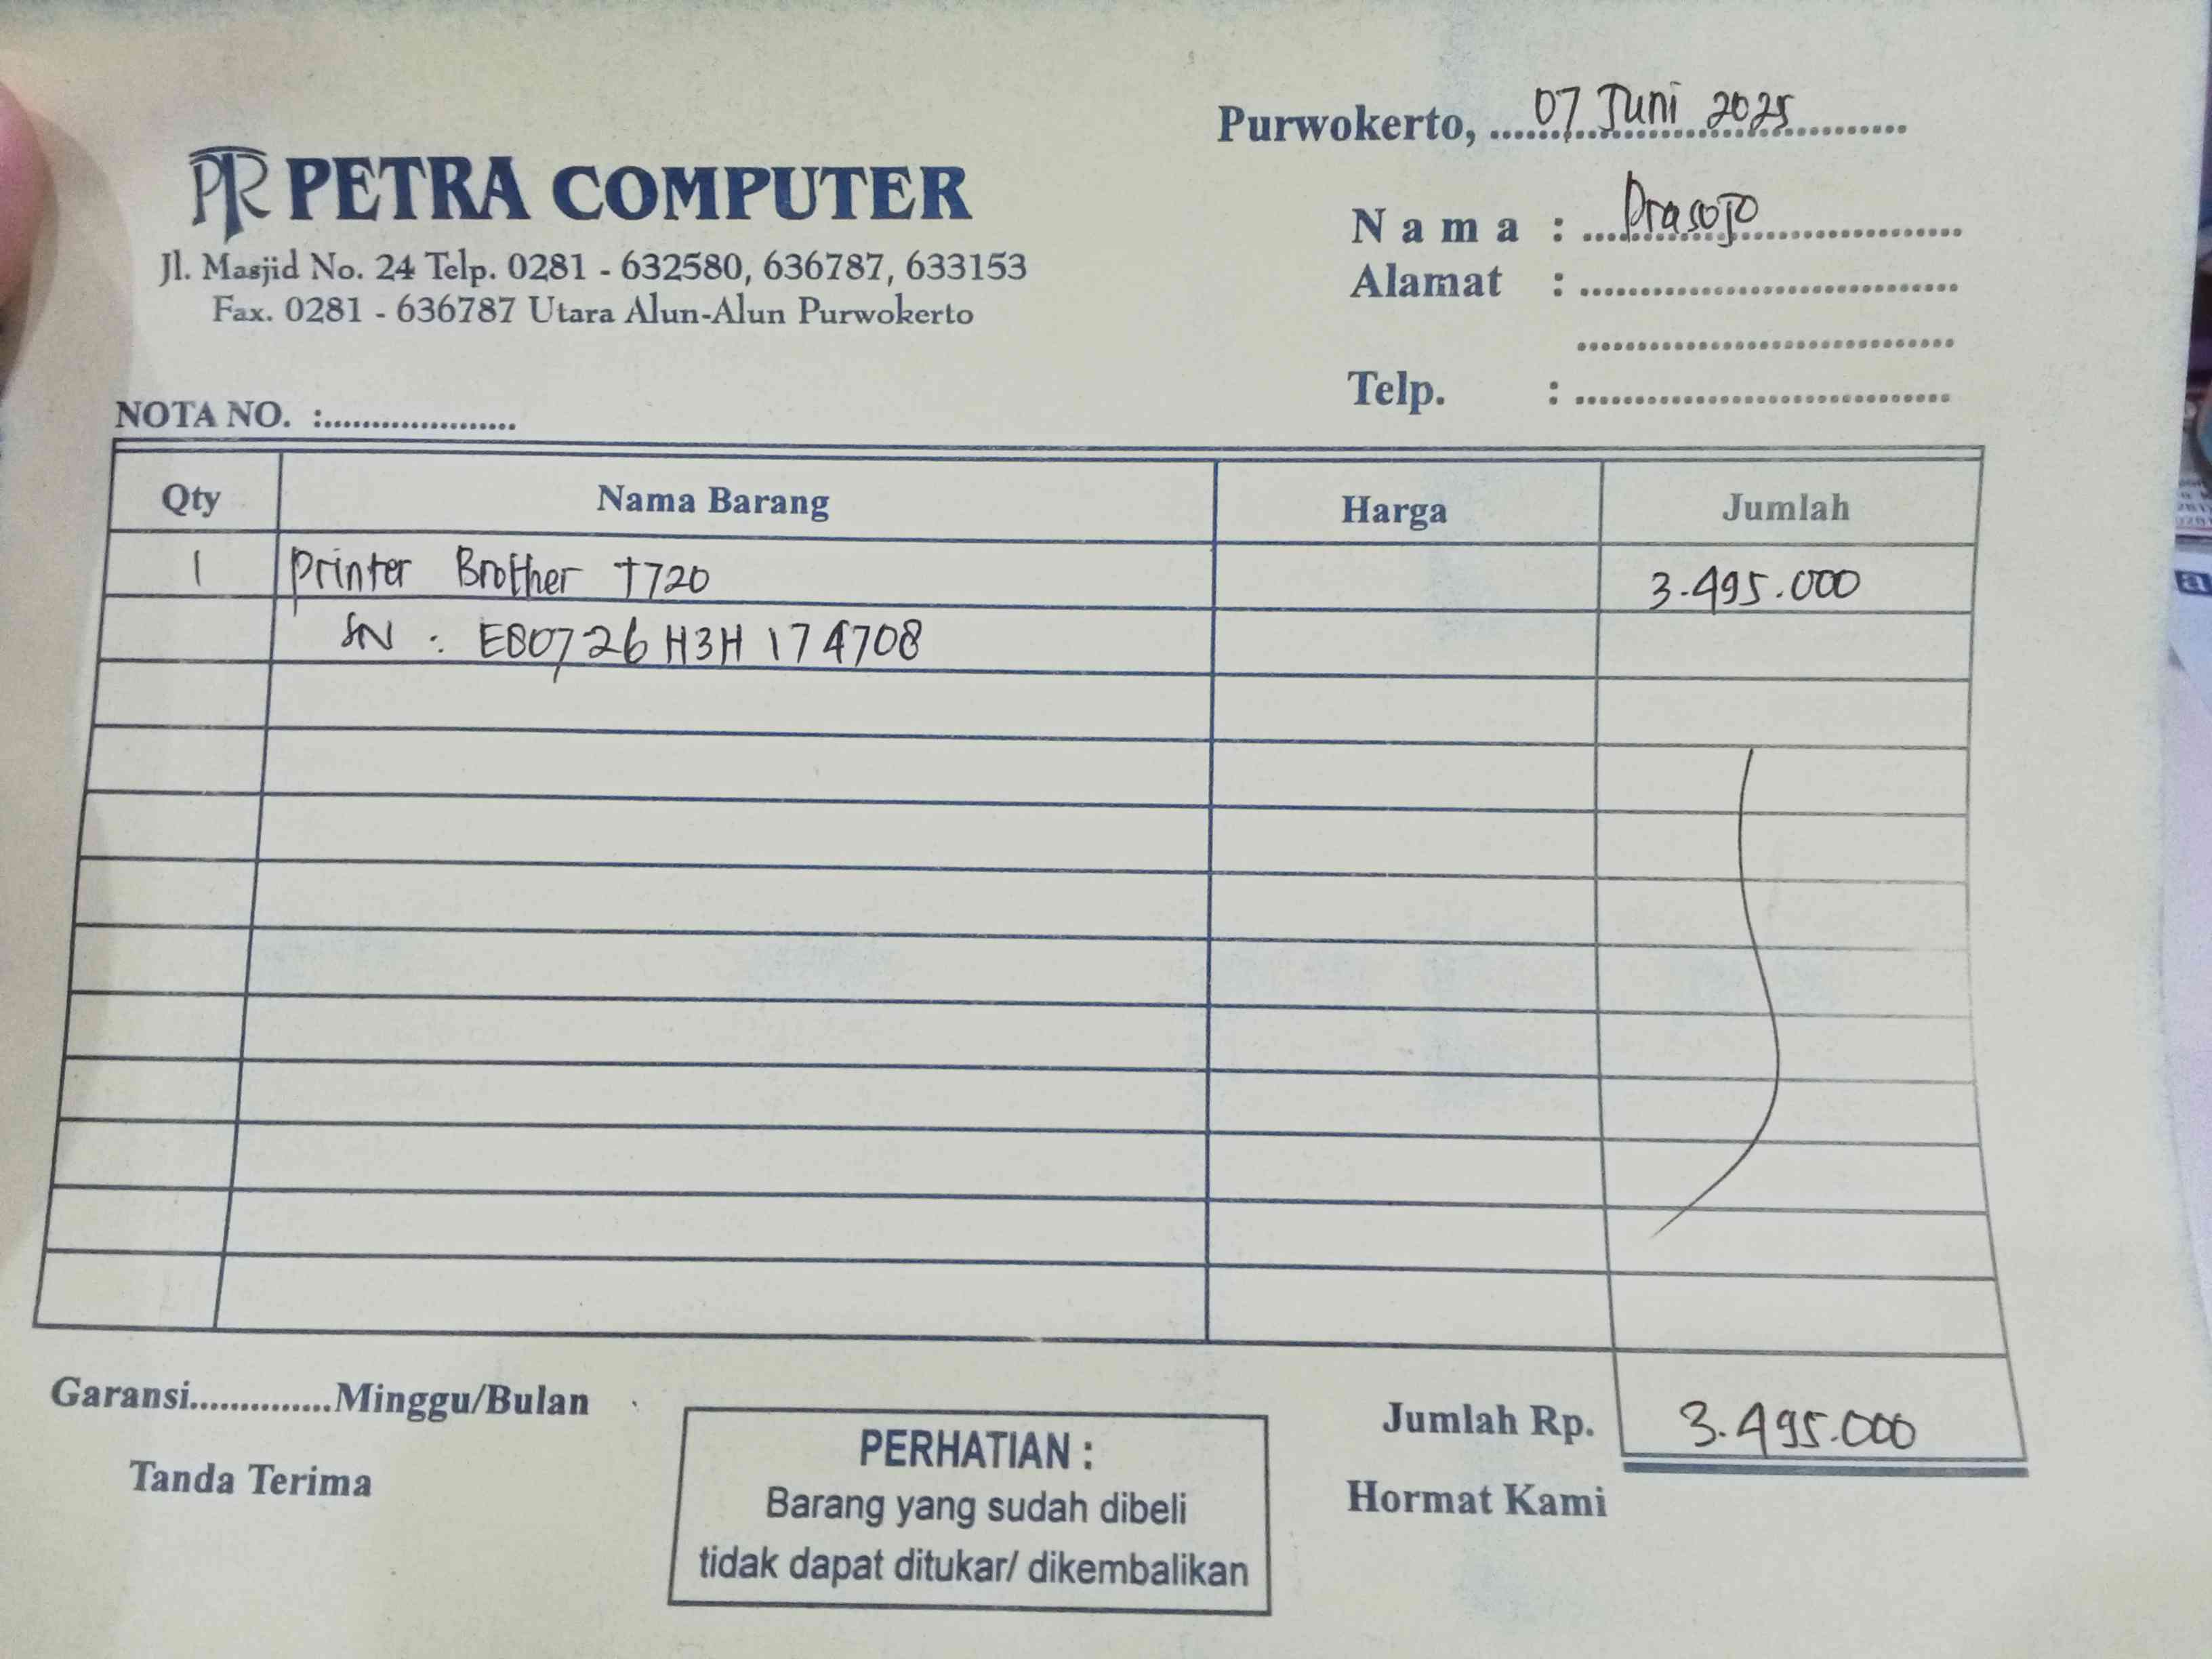 Purwokerto, ........................ 07 Juni 2025
PTR PETRA COMPUTER
Jl. Masjid No. 24 Telp. 0281 - 632580, 636787, 633153
Fax. 0281 - 636787 Utara Alun-Alun Purwokerto
Nama : Prasojo
Alamat :
Telp. :
NOTA NO. :
Qty Nama Barang Harga Jumlah
1 Printer Brother T720 3.495.000
SN : E80726H3H174708
Garansi..............Minggu/Bulan
Jumlah Rp. 3.495.000
Tanda Terima
Hormat Kami
PERHATIAN :
Barang yang sudah dibeli
tidak dapat ditukar/ dikembalikan